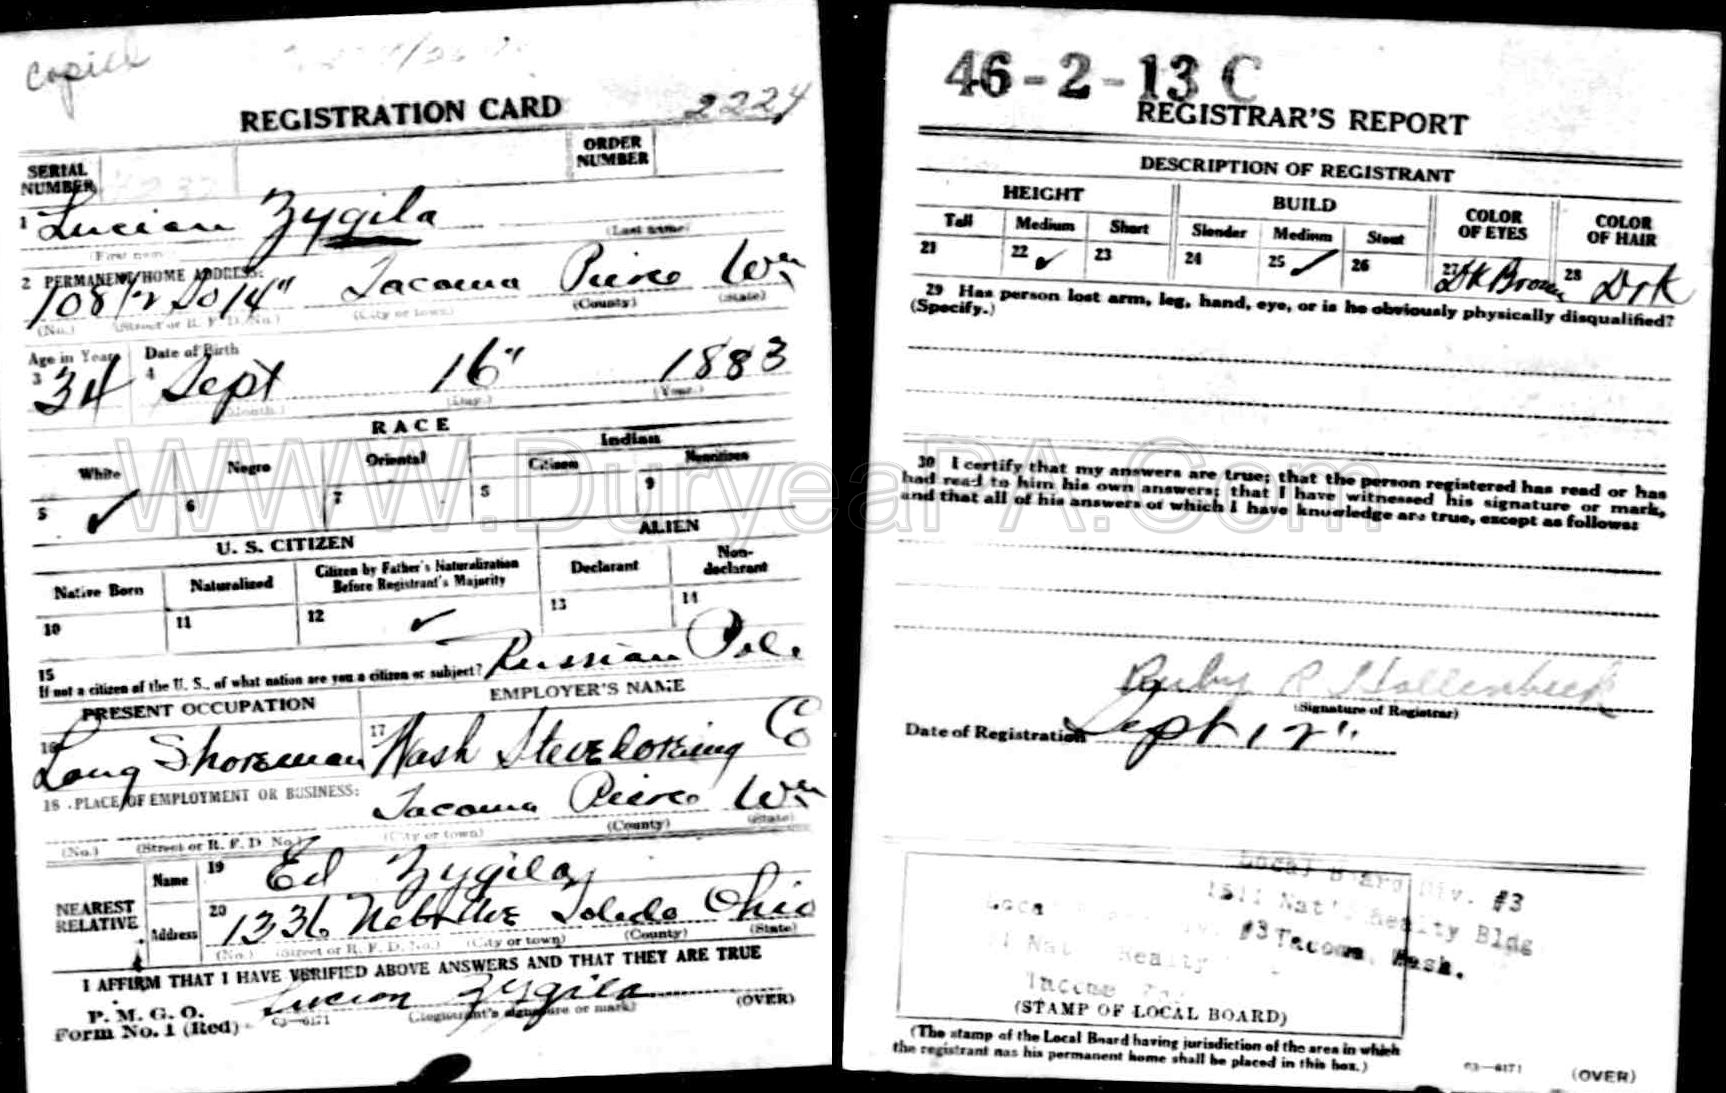 copied
REGISTRATION CARD 2224
SERIAL NUMBER
ORDER NUMBER
1 Lucian Zygila
(First name) (Last name)
2 PERMANENT HOME ADDRESS:
108 1/2 So 14" Tacoma Pierce Wn
(No.) (Street or R. F. D. No.) (City or town) (County) (State)
Age in Years Date of Birth
3 34 4 Sept 16" 1883
(Month.) (Day.) (Year.)
RACE
White Negro Oriental Indian
Citizen Noncitizen
5 ✓ 6 7 8 9
U. S. CITIZEN ALIEN
Native Born Naturalized Citizen by Father's Naturalization Before Registrant's Majority Declarant Non-declarant
10 11 12 ✓ 13 14
15
If not a citizen of the U. S., of what nation are you a citizen or subject? Russian Pole
PRESENT OCCUPATION EMPLOYER'S NAME
16 Long Shoreman 17 Wash Stevedoreing Co
18 PLACE OF EMPLOYMENT OR BUSINESS:
Tacoma Pierce Wn
(No.) (Street or R. F. D. No.) (City or town) (County) (State)
NEAREST RELATIVE
Name 19 Ed Zygila
Address 20 1336 Nebr Ave Toledo Ohio
(No.) (Street or R. F. D. No.) (City or town) (County) (State)
I AFFIRM THAT I HAVE VERIFIED ABOVE ANSWERS AND THAT THEY ARE TRUE
P. M. G. O.
Form No. 1 (Red) 03—6171 Lucian Zygila
(Registrant's signature or mark) (OVER)
46-2-13 C
REGISTRAR'S REPORT
DESCRIPTION OF REGISTRANT
HEIGHT BUILD COLOR OF EYES COLOR OF HAIR
Tall Medium Short Slender Medium Stout
21 22 ✓ 23 24 25 ✓ 26 27 Dk Brown 28 Drk
29 Has person lost arm, leg, hand, eye, or is he obviously physically disqualified?
(Specify.)
30 I certify that my answers are true; that the person registered has read or has
had read to him his own answers; that I have witnessed his signature or mark,
and that all of his answers of which I have knowledge are true, except as follows:
Ruby R Hollenbeck
(Signature of Registrar)
Date of Registration Sept 12"
Local Board Div. #3
1511 Nat'l Realty Bldg
Tacoma, Wash.
(STAMP OF LOCAL BOARD)
(The stamp of the Local Board having jurisdiction of the area in which
the registrant has his permanent home shall be placed in this box.)
03—6171 (OVER)
WWW.DuryeaPA.Com